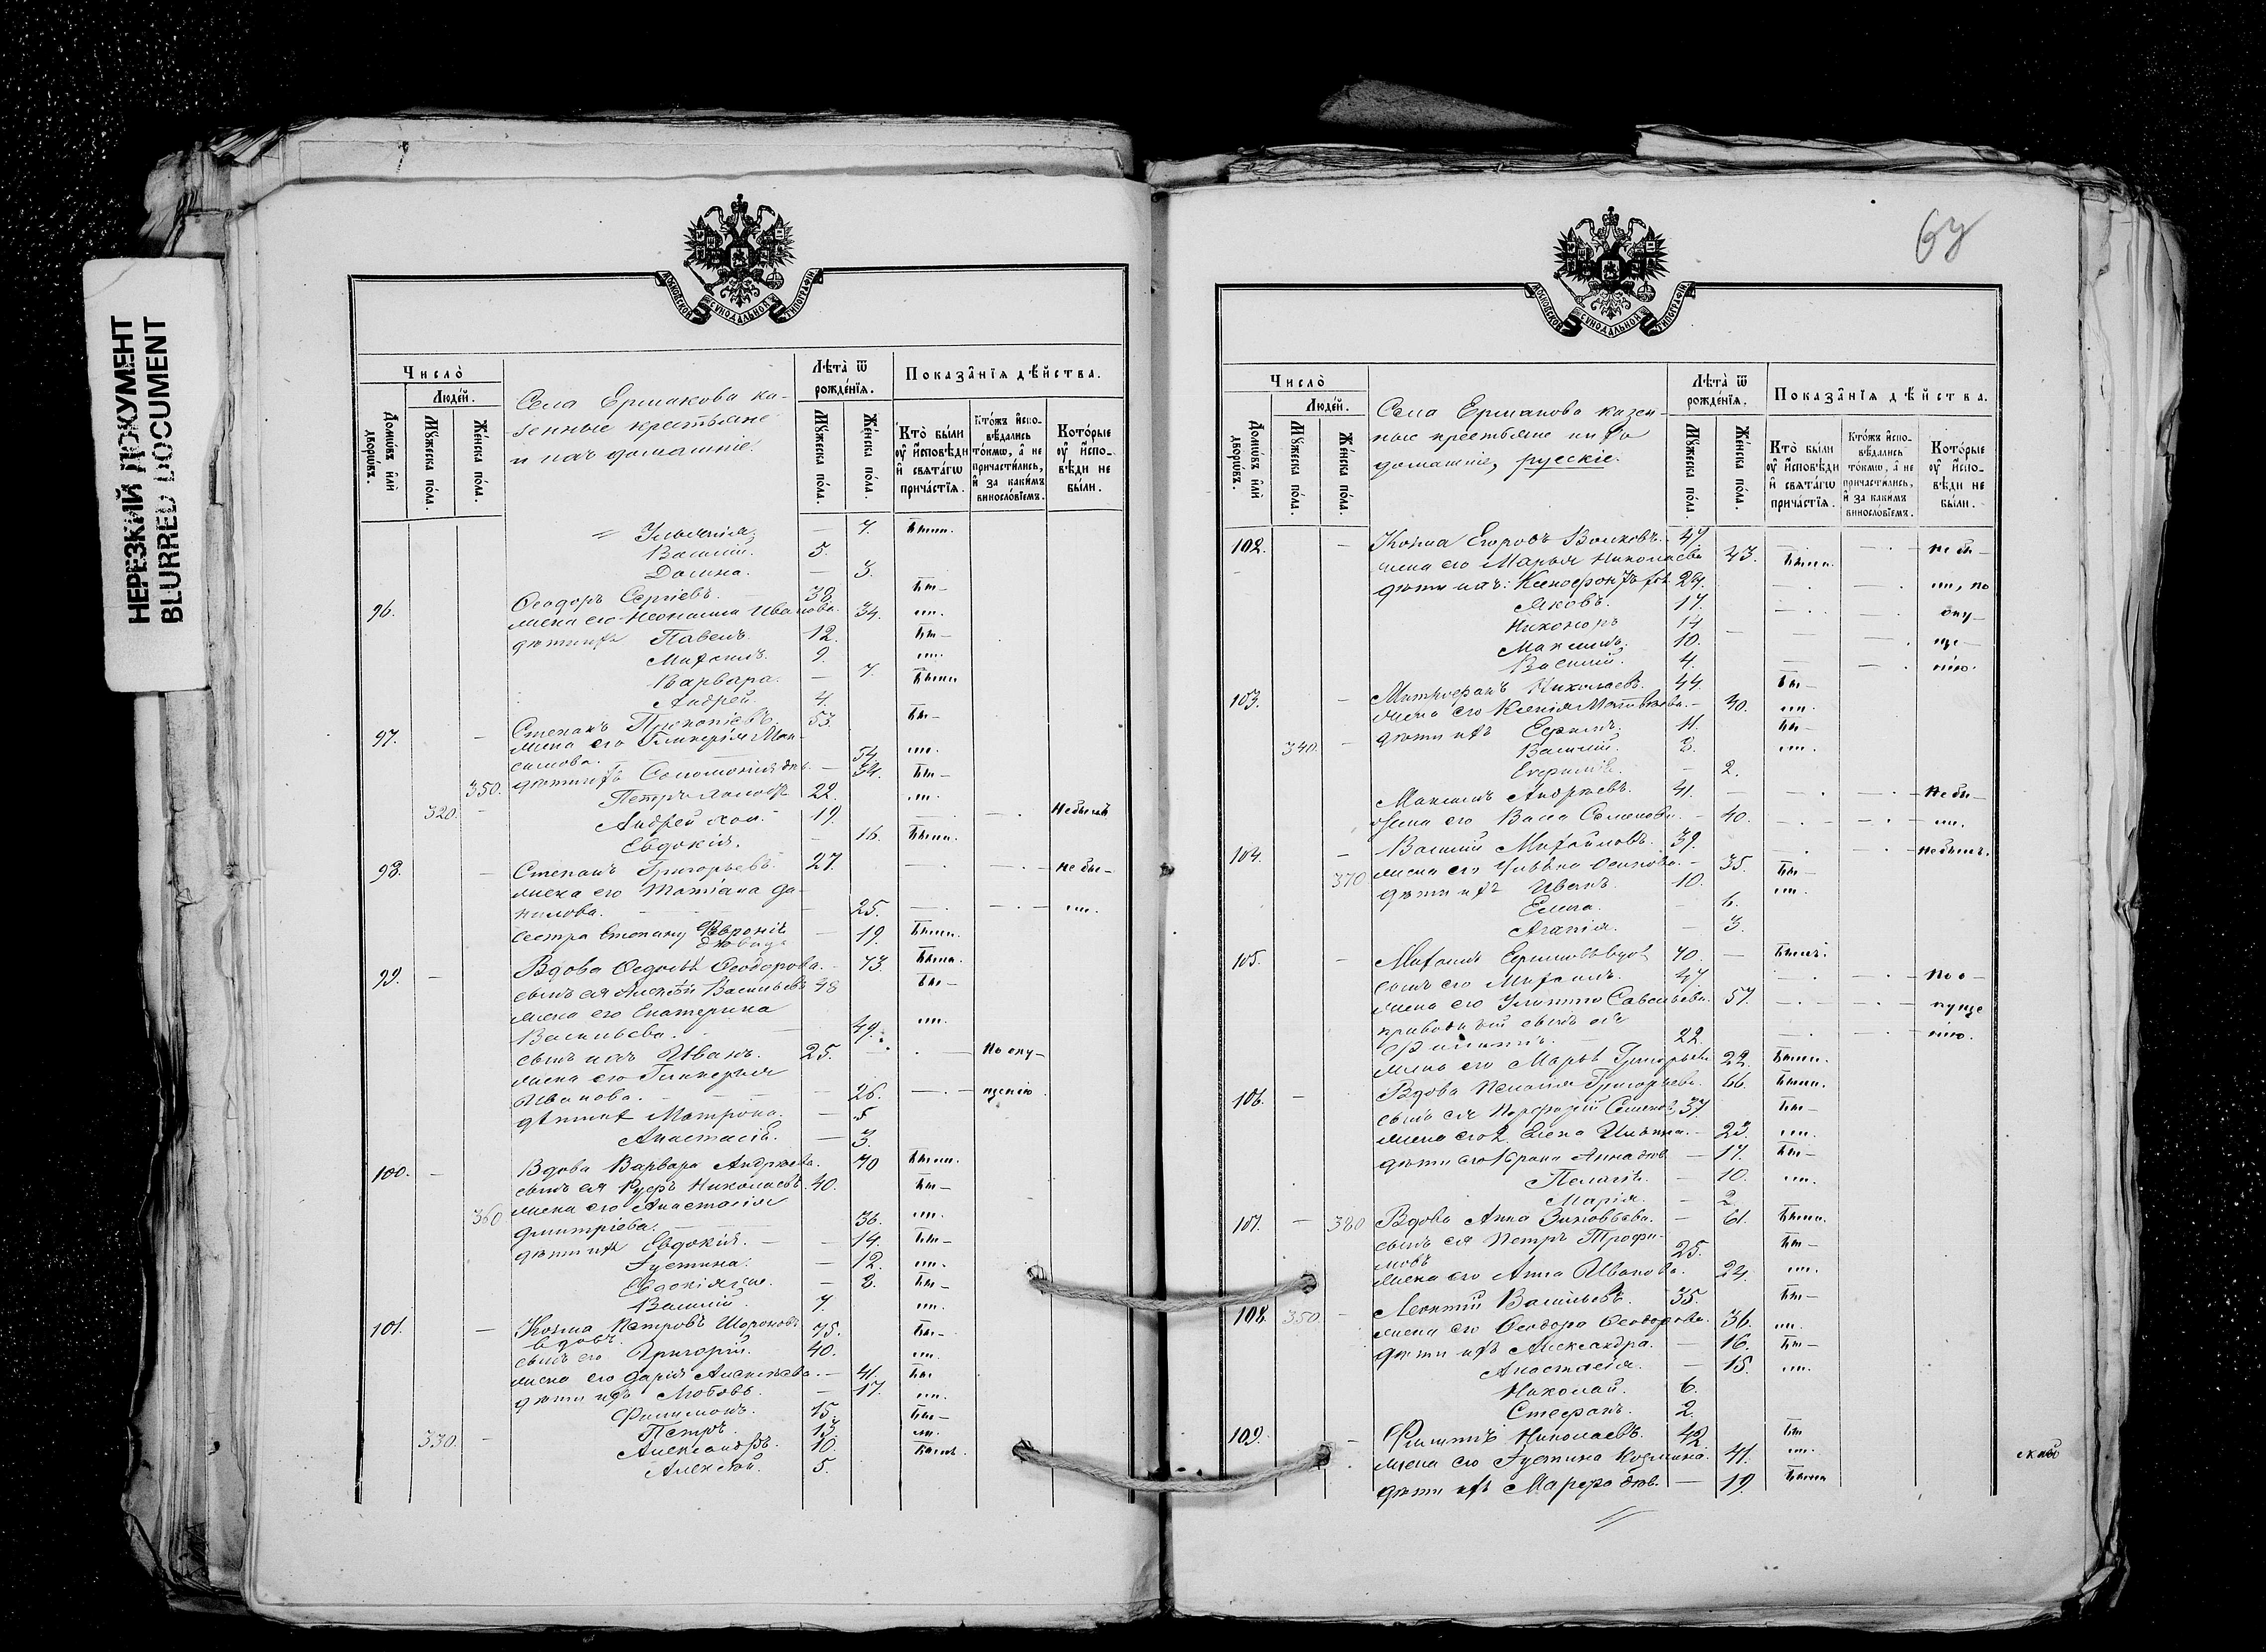 НЕРЕЗКИЙ ДОКУМЕНТ
BLURRED DOCUMENT
МОСКОВСКОЙ СѴНОДАЛЬНОЙ ТИПОГРАФІИ
Число̀
Людей.
Домѡвъ и҆лѝ дворѡвъ.
Мꙋжеска пола.
Женска пола.
Села Ермакова ка-
зенные крестьяне
и ихъ домашніе.
Лѣта ѿ рожденїѧ.
Мꙋжеска пола.
Женска пола.
Показанїѧ дѣйства.
Кто̀ были ᲂу҆ и҆сповѣди и҆ свѧтагѡ причастїѧ.
Ктожъ и҆спо-вѣдались токмѡ, а҆ не причастились, и҆ за какимъ винословїемъ.
Которые ᲂу҆ и҆спо-вѣди не были.
Іульянія. — 7. были.
Василій. 5.
Домна. — 3.
96. Ѳеодоръ Сергіевъ. 38. бы-
жена его Неонила Иванова. 34. ли.
дѣти ихъ Павелъ. 12. бы-
Михаилъ. 9. ли.
Варвара. — 7. были
Андрей. 4.
97. Степанъ Прокопіевъ. 53. бы-
жена его Гликерія Мак-
симова. 54. ли.
350. дѣти ихъ Соломонія дѣв. — 34. бы-
Петръ холост 22. ли.
320. Андрей хол. 19. Не былъ
Евдокія. — 16. были.
98. Степанъ Григорьевъ. 27. не бы-
жена его Татіана Да-
нилова. 25. ли.
сестра Степану Февронія
дѣвица — 19. были.
99. Вдова Ѳедосья Ѳеодорова. 73. были.
сынъ ея Алексѣй Васильевъ 48 бы-
жена его Екатерина
Васильева. 49. ли.
сынъ ихъ Иванъ. 25. По опу-
жена его Гликерья
Иванова. — 26. щенію
дѣти их Матрона. — 5
Анастасія. — 3.
100. Вдова Варвара Андреева. 70 были.
сынъ ея Руфъ Николаевъ. 40. бы-
360 жена его Анастасія
Димитріева. 36. ли.
дѣти их Евдокія. — 14. бы-
Іустина. — 12. ли.
Евдокія — 8. бы-
Василій. 7. ли.
101. Козма Петровъ Шороховъ 75. бы-
вдовъ.
сынъ его Григорій. 40. ли.
жена его Дарія Алексѣева. — 41. бы-
дѣти ихъ Любовь. — 17. ли.
Филимонъ. 15. бы-
330. Петръ. 13. ли.
Александръ. 10. былъ.
Алексѣй. 5.
МОСКОВСКОЙ СѴНОДАЛЬНОЙ ТИПОГРАФІИ
Число̀
Людей.
Домѡвъ и҆лѝ дворѡвъ.
Мꙋжеска пола.
Женска пола.
Села Ермакова казен-
ные крестьяне и ихъ
домашніе, русскіе.
Лѣта ѿ рожденїѧ.
Мꙋжеска пола.
Женска пола.
Показанїѧ дѣйства.
Кто̀ были ᲂу҆ и҆сповѣди и҆ свѧтагѡ причастїѧ.
Ктожъ и҆спо-вѣдались токмѡ, а҆ не причастились, и҆ за какимъ винословїемъ.
Которые ᲂу҆ и҆спо-вѣди не были.
102. Козма Егоровъ Волковъ. 47. не бы-
жена его Марья Николаева 43. были.
дѣти ихъ: Ксенофонтъ 29. ли, по
Яковъ. 17. опу-
Никоноръ 14 ще-
Максимъ. 10. нію.
Василій. 4.
103. Митрофанъ Николаевъ. 44. бы-
жена его Ксенія Матвѣева. — 40. ли.
340. дѣти ихъ Ефимъ. 11. бы-
Василій. 8. ли.
Евфимія. — 2.
Максимъ Андреевъ. 41. Не бы-
жена его Васса Семенова. — 40. ли.
104. Василій Михайловъ. 39. Не былъ.
370 жена его Ульяна Осипова. — 35. бы-
дѣти ихъ Иванъ. 10. ли.
Елена. — 6.
Агапія. — 3.
105. Михаилъ Ефимовъ вдов 70. — былъ.
сынъ его Михаилъ. 47 По о-
жена его Савельева. 57. пуще
приводный сынъ ея
Филиппъ. 22. нію.
жена его Марья Григорьева 22. были.
106. Вдова Пелагія Григорьева. 66. были.
сынъ ея Порфирій Семенов 37. бы-
жена его 2. Елена Ильина. — 23. ли.
дѣти его 1 брака Анна дѣв — 17. бы-
Пелагія. — 10. ли.
Марія. — 2.
107. 380 Вдова Анна Зиновьева. — 61. были.
сынъ ея Петръ Трофи-
мовъ 25. бы-
жена его Анна Иванова. 24. ли.
108. 350. Леонтій Васильевъ. 35. бы-
жена его Ѳеодора Ѳеодорова. 36. ли.
дѣти ихъ Александра. — 16. бы-
Анастасія. — 15. ли.
Николай. 6.
Стефанъ. 2.
109. Филиппъ Николаевъ. 42. бы
жена его Іустина Козмина. 41. ли.
дѣти ихъ Марфа дѣв. — 19. была